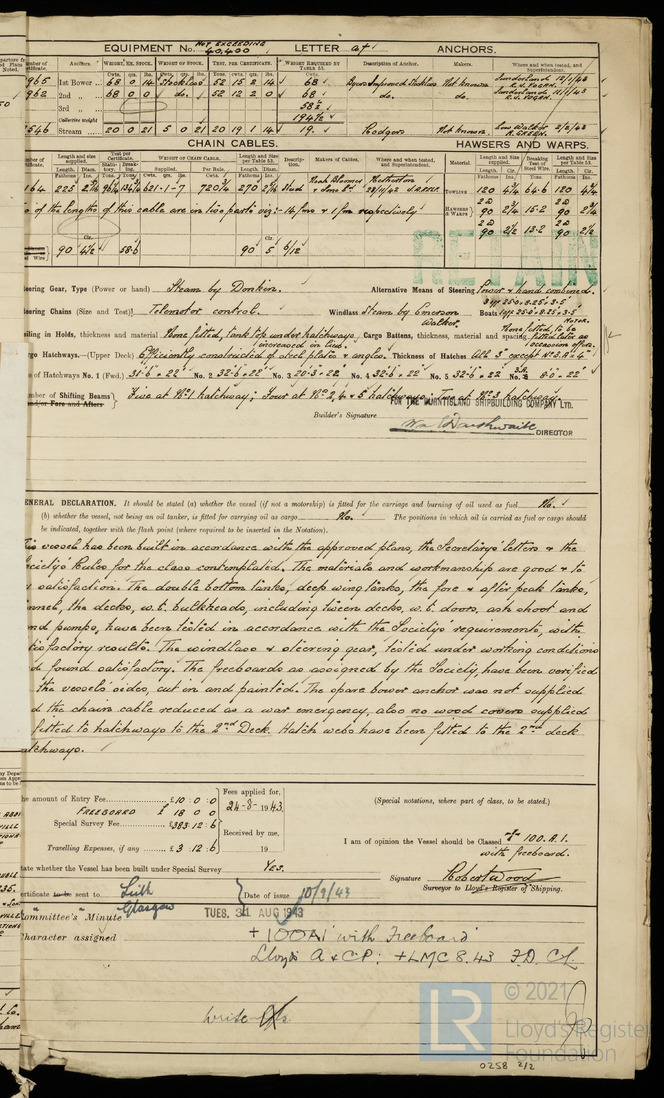 EQUIPMENT No. NOT EXCEEDING 40,400 LETTER at ANCHORS.
Anchors. WEIGHT, EX. STOCK. WEIGHT OF STOCK. TEST, PER CERTIFICATE. WEIGHT REQUIRED BY TABLE 53. Description of Anchor. Makers. Where and when tested, and Superintendent.
Cwts. qrs. lbs. Cwts. qrs. lbs. Tons. cwts. qrs. lbs. Cwts.
965 1st Bower 68 0 14 Stockless 52 15 2 14 68 Byers Improved Stockless Not Known Sunderland
962 2nd " 68 0 0 do. 52 12 2 0 68 do. do. Sunderland
3rd " 58½
Collective weight 194½
546 Stream 20 0 21 5 0 21 20 19 1 14 19. Rodgers Not known. Low Walker
CHAIN CABLES. HAWSERS AND WARPS.
Length and size supplied. Test per Certificate. WEIGHT OF CHAIN CABLE. Length and Size per Table 53. Description. Makers. Where and when tested, and Superintendent. Material. Length and Size supplied. Breaking Test of Steel Wire. Length and Size per Table 53.
Length. Diam. Supplied. Per Rule. Length. Diam. Fathoms Cir. Tons. Fathoms Cir.
164 225 621-1-7 720¼ 270 Stud Netherton TOWLINE 120 4¼ 64.6 120 4¼
of the lengths of this cable are in two parts viz:- 14 fms & 1 fm respectively
HAWSERS & WARPS 90 2¾ 15.2 90 2¾
90 2½ 13.2 90 2½
90 4½ 58.6 90 5 6/12
RETAIN
eering Gear, Type (Power or hand) Steam by Donkin. Alternative Means of Steering Power & hand combined.
eering Chains (Size and Test) Telemotor control. Windlass Steam by Emerson Walker. Boats
eiling in Holds, thickness and material None fitted, tank top under hatchways increased in lieu. Cargo Battens, thickness, material and spacing None fitted, to be fitted later as
rgo Hatchways.—(Upper Deck) Efficiently constructed of steel plate & angles. Thickness of Hatches All 3" except No 3.A = 4"
of Hatchways No. 1 (Fwd.) 31-6 x 22' No. 2 32-6 x 22' No. 3 20-3 x 22' No. 4 32-6 x 22' No. 5 32-6 x 22' No. 3A. 8-0 x 22'
mber of Shifting Beams Five at No 1 hatchway; Four at No 2, 4 & 5 hatchways; Two at No 3 hatchway.
and/or Fore and Afters
FOR THE BURNTISLAND SHIPBUILDING COMPANY LTD.
Builder's Signature
DIRECTOR
ENERAL DECLARATION. It should be stated (a) whether the vessel (if not a motorship) is fitted for the carriage and burning of oil used as fuel No.
(b) whether the vessel, not being an oil tanker, is fitted for carrying oil as cargo No. The positions in which oil is carried as fuel or cargo should
be indicated, together with the flash point (where required to be inserted in the Notation).
This vessel has been built in accordance with the approved plans, the Secretary's letters & the
ociety's Rules for the class contemplated. The materials and workmanship are good & to
satisfaction. The double bottom tanks, deep wing tanks, the fore & after peak tanks,
nnel, the decks, w.t. bulkheads, including tween decks, w.t. doors, ash shoot and
nd pumps, have been tested in accordance with the Society's requirements, with
tisfactory results. The windlass & steering gear, tested under working conditions
d found satisfactory. The freeboards as assigned by the Society, have been verified
the vessels sides, cut in and painted. The spare bower anchor was not supplied
d the chain cable reduced as a war emergency, also no wood covers supplied
fitted to hatchways to the 2nd Deck. Hatch webs have been fitted to the 2nd deck
atchways.
he amount of Entry Fee £10 : 0 : 0
FREEBOARD £ 18 0 0
Special Survey Fee £383 : 12 : 6
Travelling Expenses, if any £3 : 12 : 6
Fees applied for,
24-8-1943
Received by me,
19
(Special notations, where part of class, to be stated.)
I am of opinion the Vessel should be Classed + 100.A.1.
with freeboard.
tate whether the Vessel has been built under Special Survey Yes.
Signature Robert Wood
Surveyor to Lloyd's Register of Shipping.
ertificate to be sent to Leith
Glasgow
Date of issue 10/9/43
ommittee's Minute TUES. 31 AUG 1943
haracter assigned +100A1 with Freeboard
Lloyds A & CP. +LMC 8.43 F.D. CL
write
© 2021
LR
Lloyd's Register
Foundation
0258 2/2